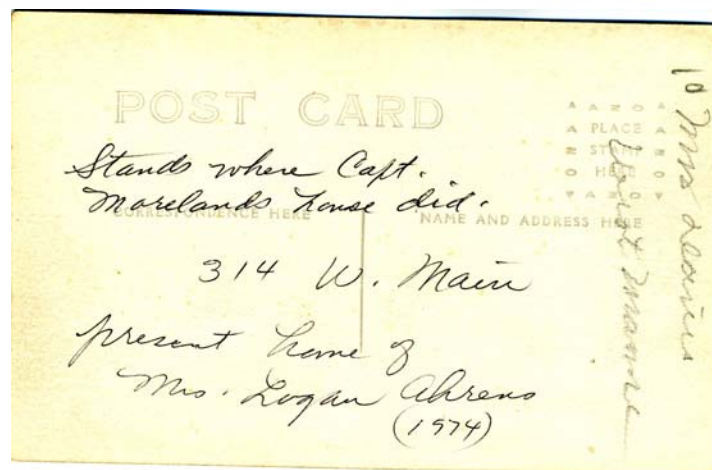 POST CARD
A A Z O A
A PLACE A
STAMP
HERE
Stands where Capt.
Morelands house did.
CORRESPONDENCE HERE
NAME AND ADDRESS HERE
314 W. Main
present home of
Mrs. Logan Ahrens
(1974)
Mrs